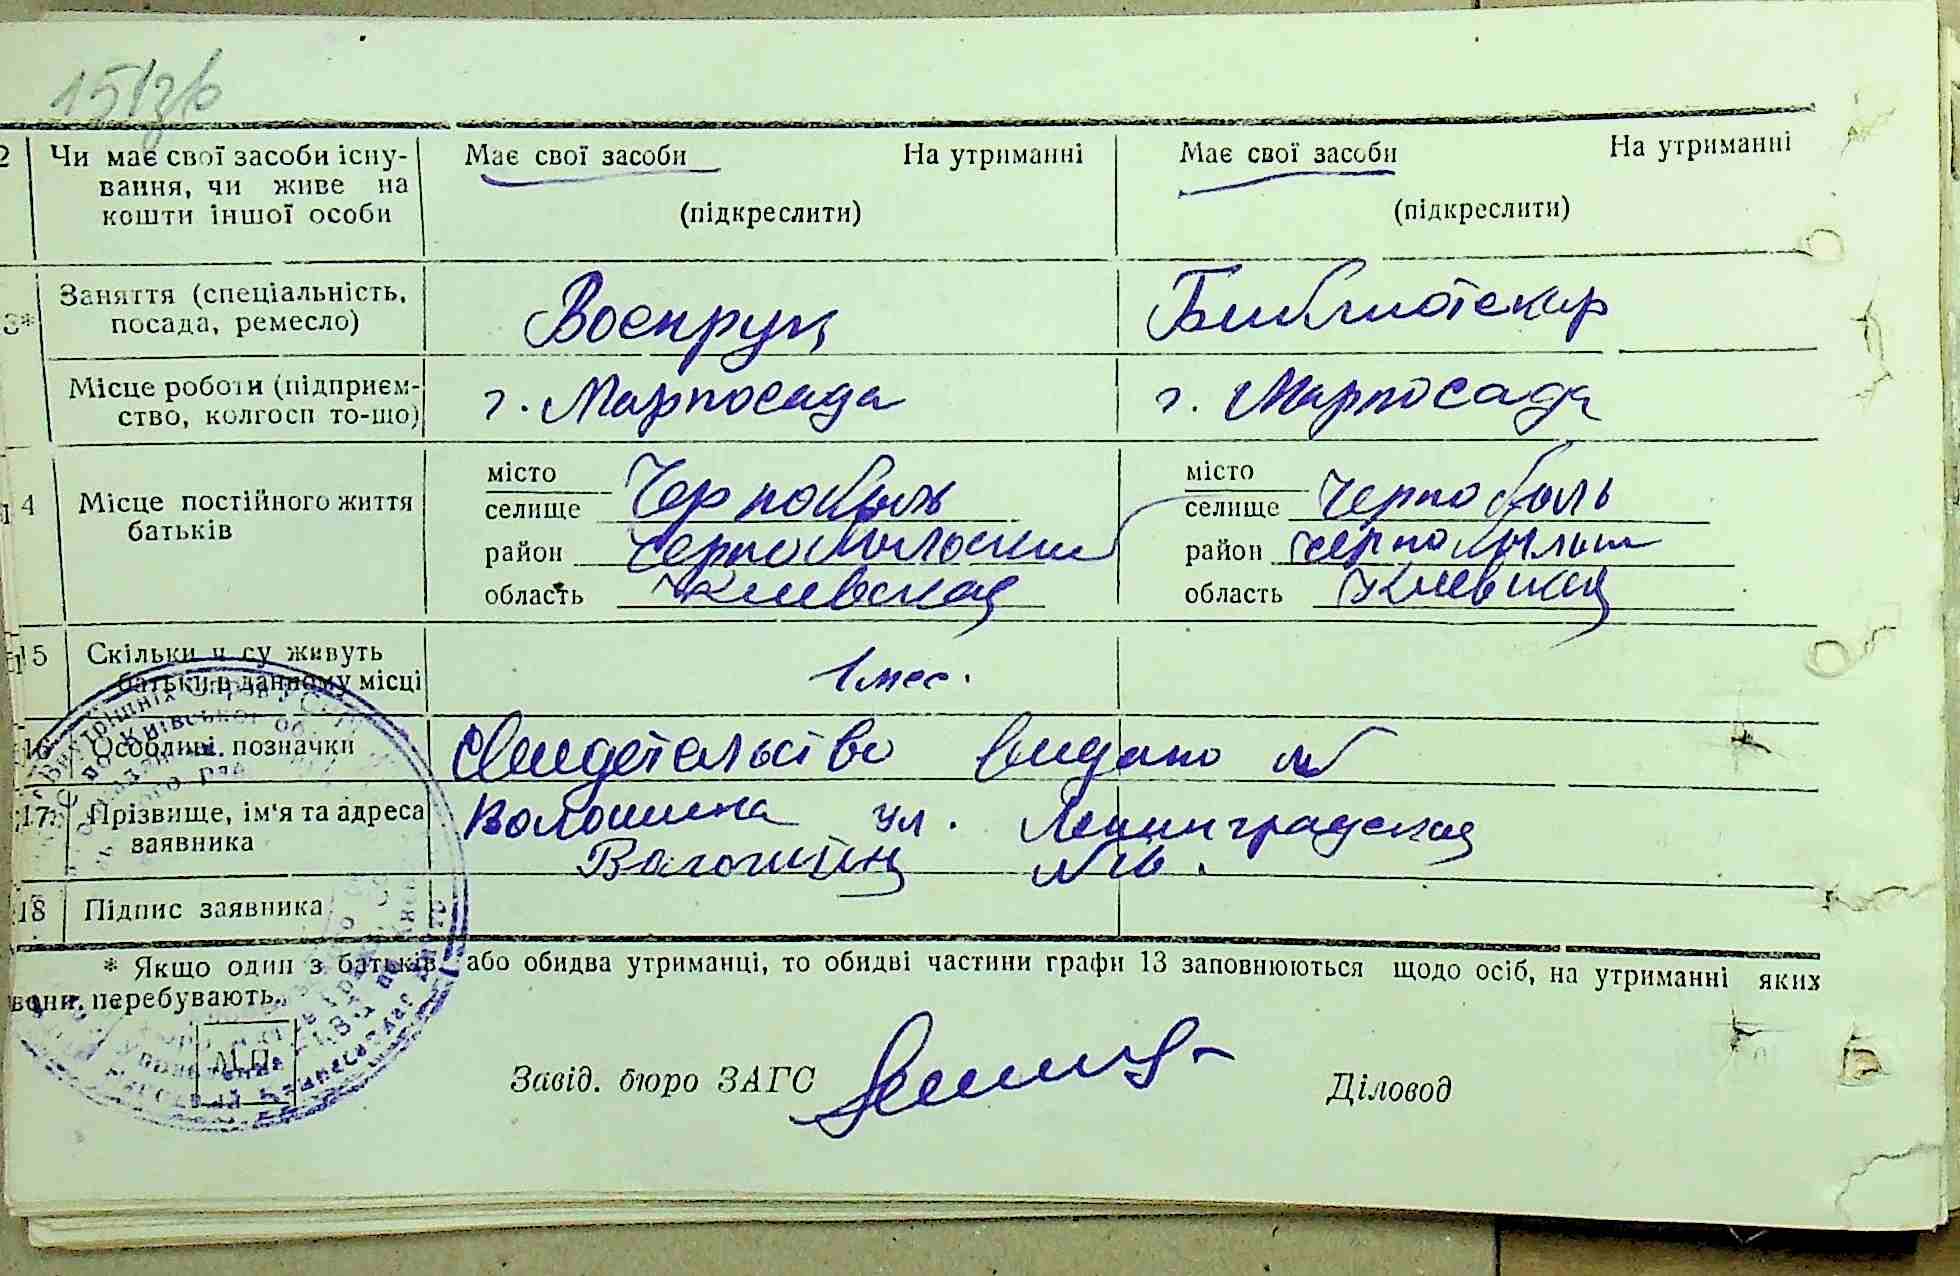 2 Чи має свої засоби існу- Має свої засоби На утриманні Має свої засоби На утриманні
вання, чи живе на
кошти іншої особи (підкреслити) (підкреслити)
3* Заняття (спеціальність,
посада, ремесло) Воєнрук Библиотекар
Місце роботи (підприєм-
ство, колгосп то-що) г. Марпосада г. Марпосада
14 Місце постійного життя
батьків
місто Чернобыль місто Чернобыль
селище селище
район район
область Киевская область Киевская
15 Скільки ч су живуть
батьки в данному місці 1 мес.
16 Особливі позначки Свидетельство видано №
17 Прізвище, ім'я та адреса
заявника Волошина ул. Ленинградская
Волошин №16.
18 Підпис заявника
* Якщо один з батьків, або обидва утриманці, то обидві частини графи 13 заповнюються щодо осіб, на утриманні яких
вони перебувають.
М.П.
Завід. бюро ЗАГС Діловод